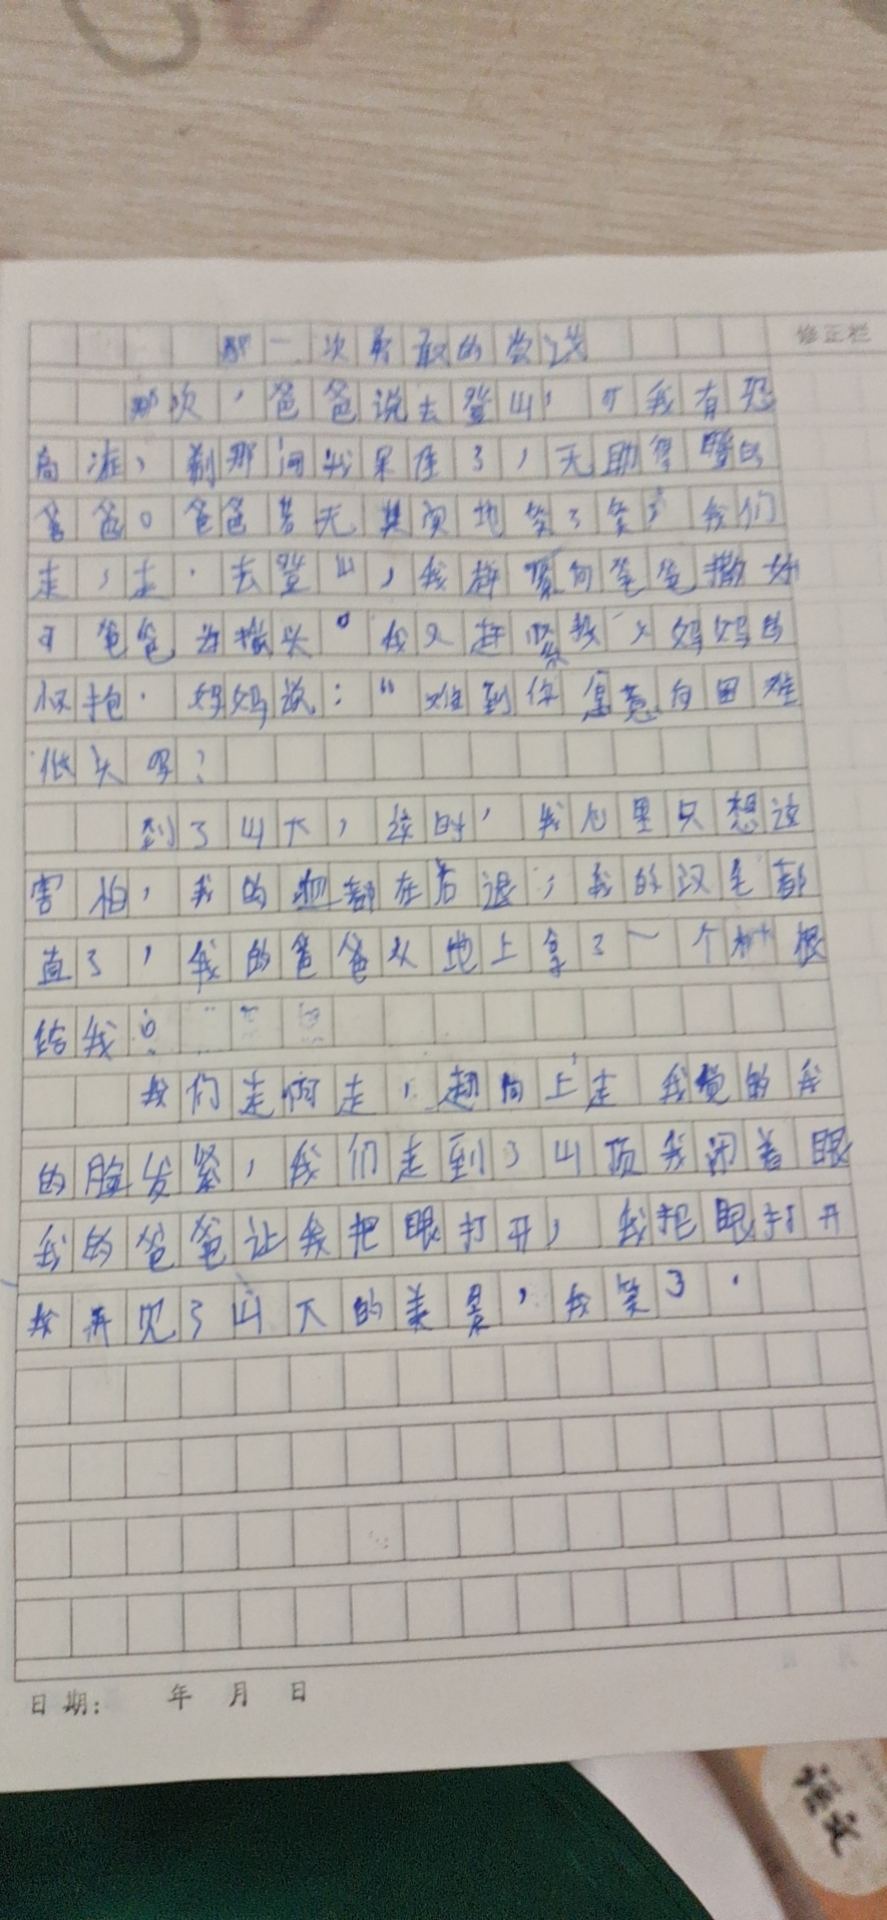 修正栏
那一次勇敢的尝试
那次，爸爸说去登山，可我有恐
高症，刹那间我呆住了，无助得瞪的
爸爸。爸爸若无其闻地笑了笑，我们
走，走·去登山，我赶紧向爸爸撒娇
可爸爸为摇头。我又赶紧找 妈妈的
怀抱·妈妈说：“难到你愿意向困难
低头吗？
到了山下，这时，我心里只想这
害怕，我的血都在后退，我的汉毛都
直了，我的爸爸从地上拿了一个树根
给我。
我们走向走，越向上走 我觉的我
的脸发紧，我们走到了山顶我闭着眼
我的爸爸让我把眼打开，我把眼打开
我看见了山下的美景，我笑了·
日期： 年 月 日
语文